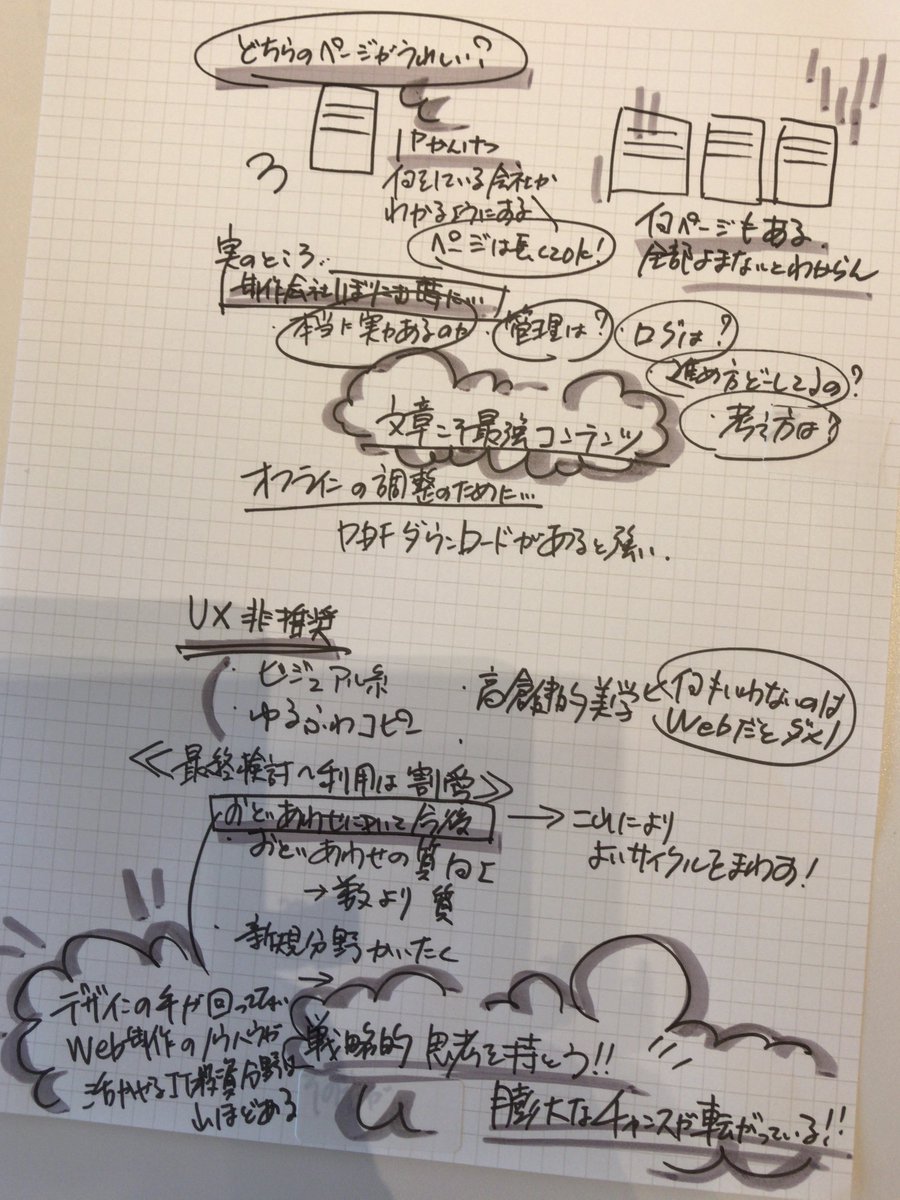 どちらのページがうれしい?
1Pかんけつ
何をしている会社か
わかるようにする
ページは長くてOK!
何ページもある
全部よまないとわからん
実のところ..
制作会社しぼりこむ時に…
・本当に実力あるのか
・管理は?
・ログは?
・進め方どーしてるの?
・考え方は?
文章こそ最強コンテンツ
オフラインの調整のために…
PDFダウンロードがあると強い.
UX非推奨
・ビジュアル系
・ゆるふわコピー
・高倉健的美学
何もいわないのは
Webだとダメ!
≪最終検討へ利用は割愛≫
おといあわせにおいて今後
→これにより
よいサイクルをまわす!
・おといあわせの質向上
→数より質
・新規分野かいたく
→
デザインの手が回ってない
Web制作のノウハウが
活かせるIT投資分野は
山ほどある
戦略的思考を持とう!!
膨大なチャンスが転がっている!!